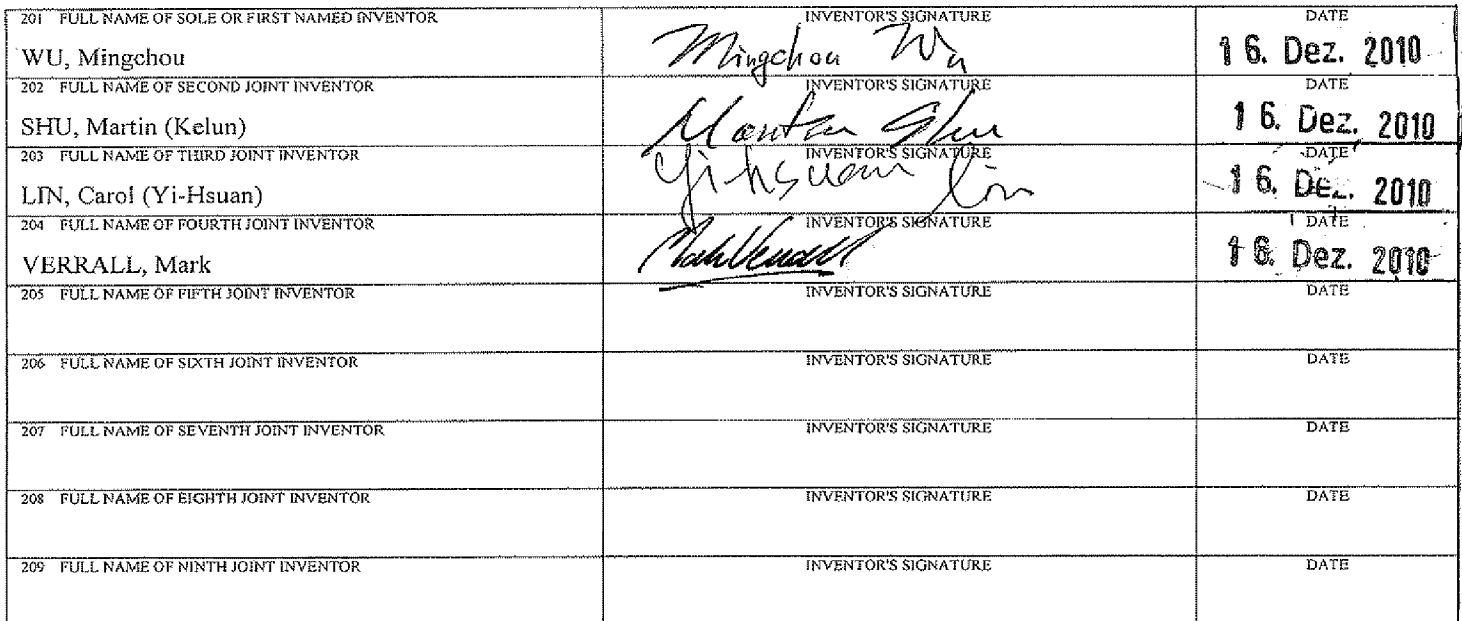 201 FULL NAME OF SOLE OR FIRST NAMED INVENTOR INVENTOR'S SIGNATURE DATE
WU, Mingchou Mingchou Wu 16. Dez. 2010
202 FULL NAME OF SECOND JOINT INVENTOR INVENTOR'S SIGNATURE DATE
SHU, Martin (Kelun) Martin Shu 16. Dez. 2010
203 FULL NAME OF THIRD JOINT INVENTOR INVENTOR'S SIGNATURE DATE
LIN, Carol (Yi-Hsuan) Yi-hsuan Lin 16. Dez. 2010
204 FULL NAME OF FOURTH JOINT INVENTOR INVENTOR'S SIGNATURE DATE
VERRALL, Mark Mark Verrall 16. Dez. 2010
205 FULL NAME OF FIFTH JOINT INVENTOR INVENTOR'S SIGNATURE DATE
206 FULL NAME OF SIXTH JOINT INVENTOR INVENTOR'S SIGNATURE DATE
207 FULL NAME OF SEVENTH JOINT INVENTOR INVENTOR'S SIGNATURE DATE
208 FULL NAME OF EIGHTH JOINT INVENTOR INVENTOR'S SIGNATURE DATE
209 FULL NAME OF NINTH JOINT INVENTOR INVENTOR'S SIGNATURE DATE